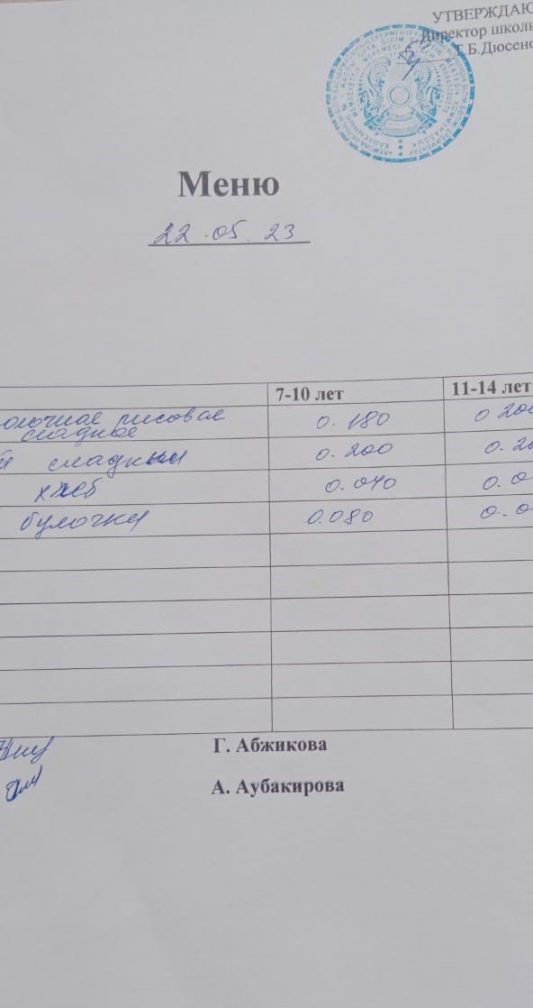 УТВЕРЖДАЮ
Директор школы
Г.Б.Дюсено
Меню
22.05.23
7-10 лет 11-14 лет
олочная рисовая 0.180 0 200
сладкое
й сладкий 0.200 0.20
хлеб 0.040 0.0
булочки 0.080 0.0
Г. Абжикова
А. Аубакирова